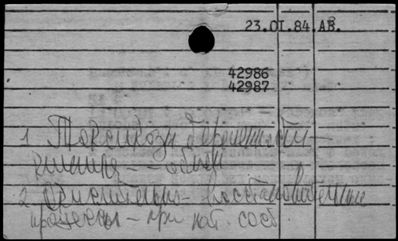 23.01.84.АВ.
42986
42987
1 Токсикозы беременности –
клиника – – общая
2 Окислительно-восстановительные
процессы – при пат. сост.